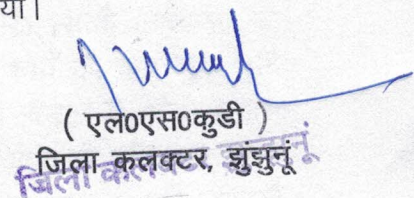 या।
( एल0एस0कुडी )
जिला कलक्टर, झुंझुनूं
जिला कलक्टर झुंझुनूं